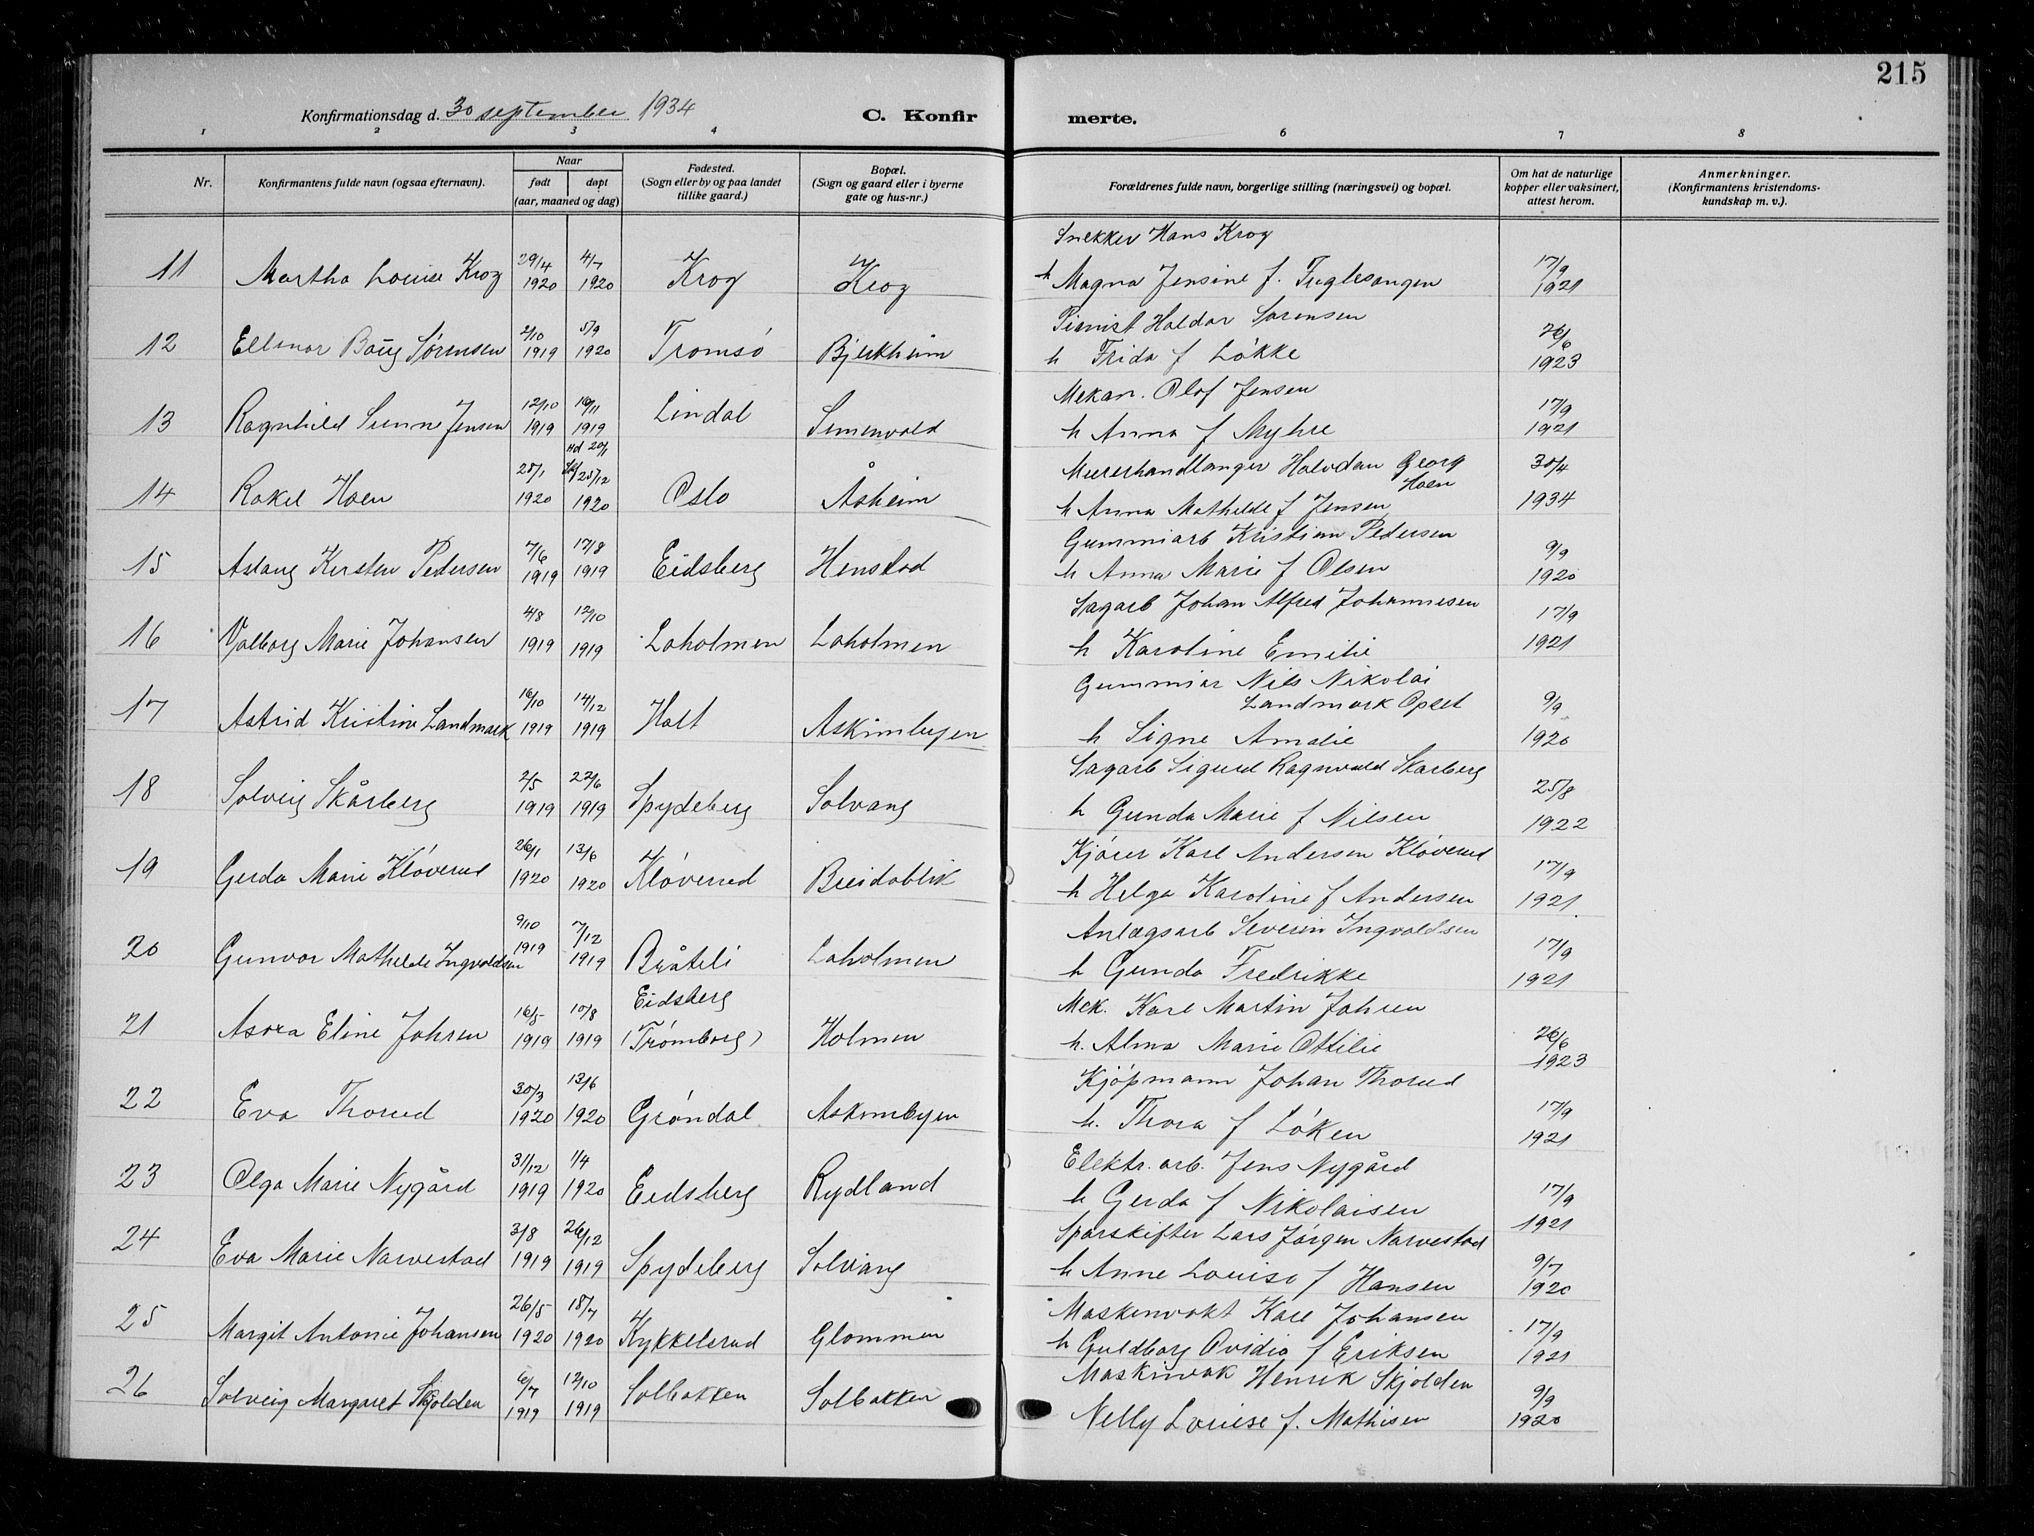 215
Konfirmationsdag d. 30 september 1934 C. Konfir merte.
1 2 3 4 6 7 8
Nr. Konfirmantens fulde navn (ogsaa efternavn). Naar født døpt (aar, maaned og dag) Fødested. (Sogn eller by og paa landet tillike gaard.) Bopæl. (Sogn og gaard eller i byerne gate og hus-nr.) Forældrenes fulde navn, borgerlige stilling (næringsvei) og bopæl. Om hat de naturlige kopper eller vaksinert, attest herom. Anmerkninger. (Konfirmantens kristendoms-kundskap m. v.).
Snekker Hans Krog
11 Martha Louise Krog 29/4 1920 4/7 1920 Krog Krog h Magna Jensine f. Fuglesangen 17/9 1921
Haldor Sørensen
12 Ellinor Sørensen 2/10 1919 5/9 1920 Tromsø Bjerkheim h Frida f Løkke 26/6 1923
Mekan. Olof Jensen
13 Ragnhild Sunne Jensen 12/10 1919 16/11 1919 Lindal h Anna f Myhre 17/9 1921
Murerhandlanger Halvdan Georg Hoen
14 Rakel Hoen 1920 1920 Oslo Åsheim h Anna Mathilde f Jensen 30/4 1934
Gummiarb Kristian Pedersen
15 Aslaug Kersten Pedersen 7/6 1919 17/8 1919 Eidsberg Henstad h Anna Marie f Olsen 9/9 1920
Sagarb Johan Alfred Johannesen
16 Valborg Marie Johansen 4/8 1919 12/10 1919 Laholmen Laholmen h Karoline Emilie 17/9 1921
Gummiar Nils Nikolai
Landmark Opset
17 Astrid Kristine Landmark 16/10 1919 14/12 1919 Holt Askimbyen h Signe Amalie 9/9 1920
Sagarb Sigurd Ragnvald Skarberg
18 Solveig Skårberg 2/5 1919 22/6 1919 Spydeberg Solvang h Gunda Marie f Nilsen 25/8 1922
Kjører Karl Andersen Kløverud
19 Gerda Marie Kløverud 26/1 1920 13/6 1920 Kløverud Breidablik h Helga Karoline f Andersen 17/9 1921
Anlægsarb Severin Ingvaldsen
20 Gunvor Mathilde Ingvaldsen 9/10 1919 7/12 1919 Bråteli Laholmen h Gunda Fredrikke 17/9 1921
Eidsberg Mek. Karl Martin Johren
21 Asora Eline Johren 16/5 1919 10/8 1919 (Trømborg) Holmen h. Alma Marie Ottilie 26/6 1923
Kjøpmann Johan Thorud
22 Eva Thorud 30/3 1920 13/6 1920 Grøndal Askimbyen h. Thora f Løken 17/9 1921
Elektr. arb. Jens Nygård
23 Olga Marie Nygård 31/12 1919 1/4 1920 Eidsberg Rydland h Gerda f Nikolaisen 17/9 1921
Sporskifter Lars Jørgen Narvestad
24 Eva Marie Narvestad 3/8 1919 26/12 1919 Spydeberg Solvang h Anne Louise f Hansen 9/7 1920
Maskinvakt Karl Johansen
25 Margit Antonie Johansen 26/5 1920 18/7 1920 Kykkelsrud Glommen h Guldborg Ovidia f Eriksen 17/9 1921
Maskinvak Henrik Skjolden
26 Solveig Margaret Skjolden 6/7 1919 12/10 1919 Solbakken Solbakken Nelly Louise f. Mathisen 9/9 1920